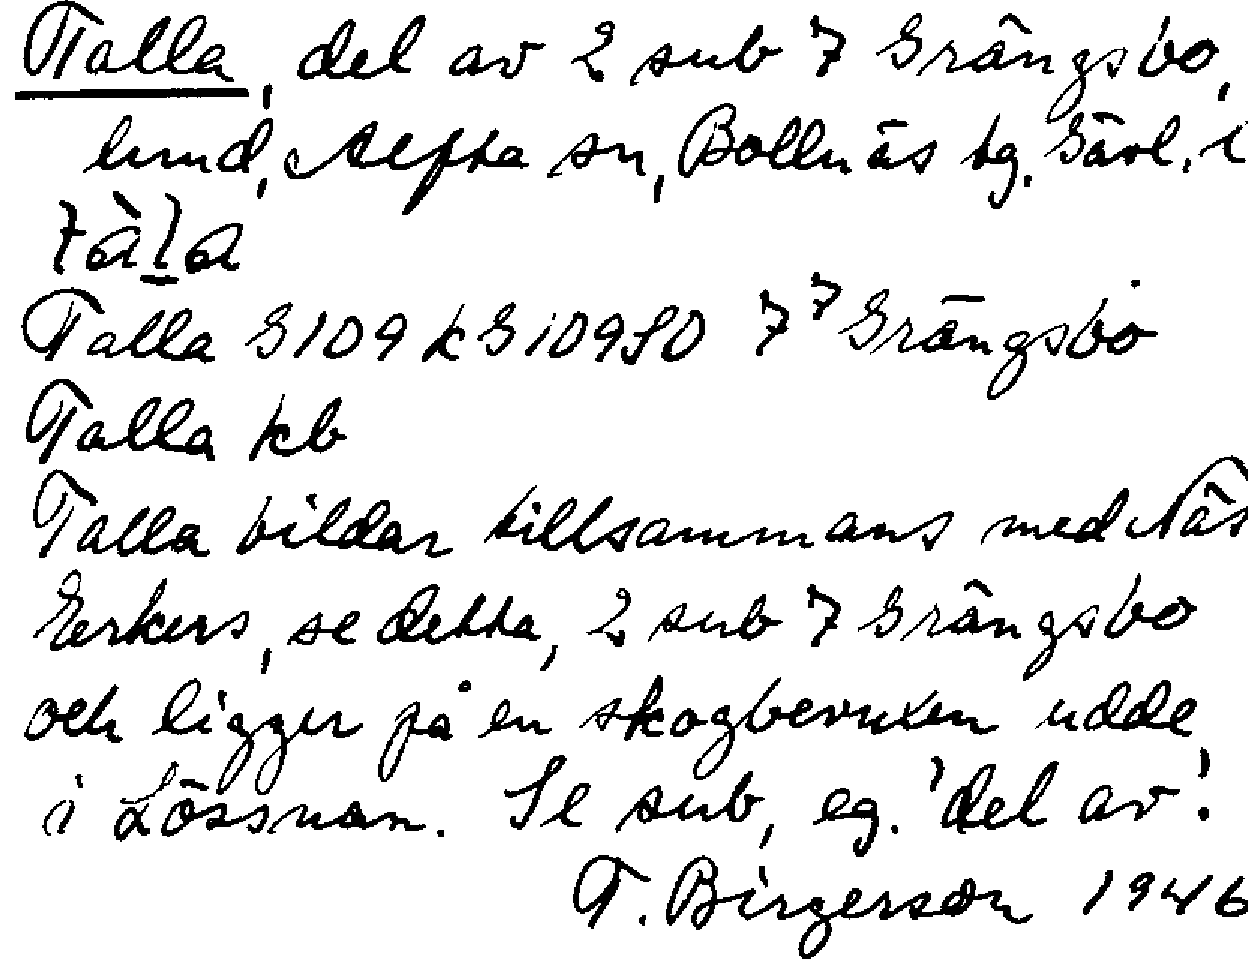 Talla, del av 2 sub 7 Grängsbo,
lund, Alfta sn, Bollnäs tg. Gävl. l
tàla
Talla G109 k G109SO 7⁷ Grängsbo
Talla kb
Talla bildar tillsammans med Näs
Eerkers, se detta, 2 sub 7 Grängsbo
och ligger på en skogbevuxen udde
i Lössnan. Se sub, eg. 'del av'.
T. Birgerson 1946